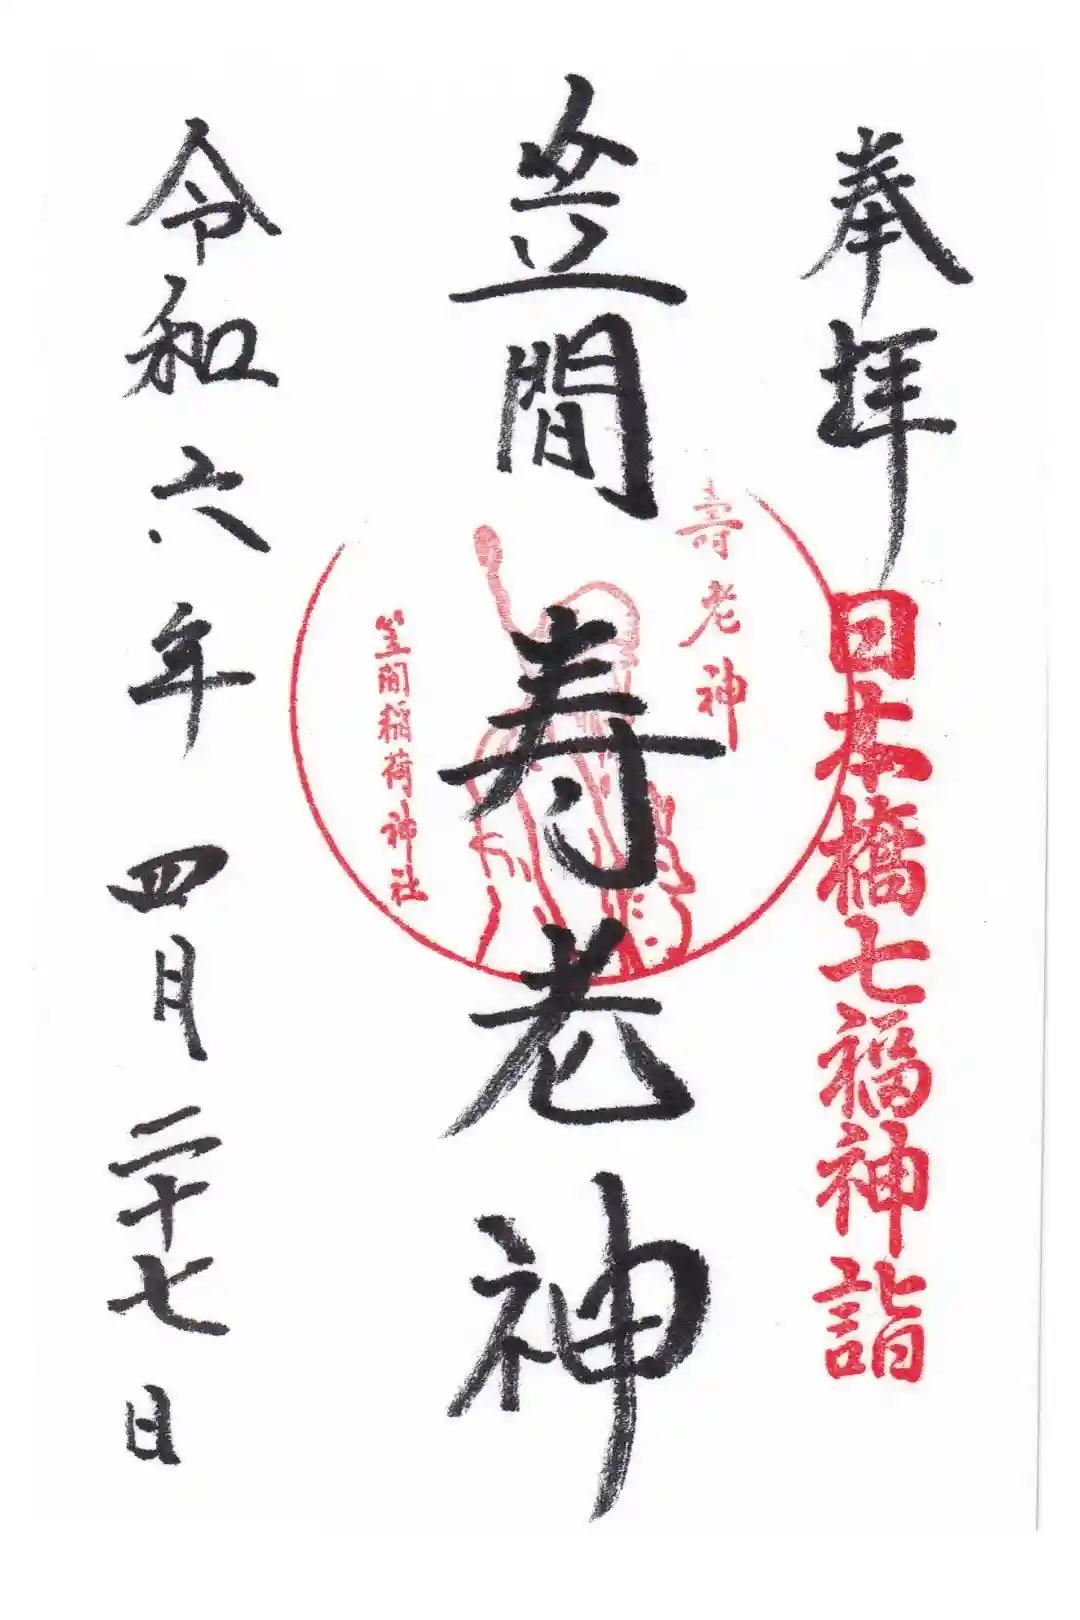 奉拝
日本橋七福神詣
笠間
寿老神
壽老神
笠間稲荷神社
令和六年四月二十七日